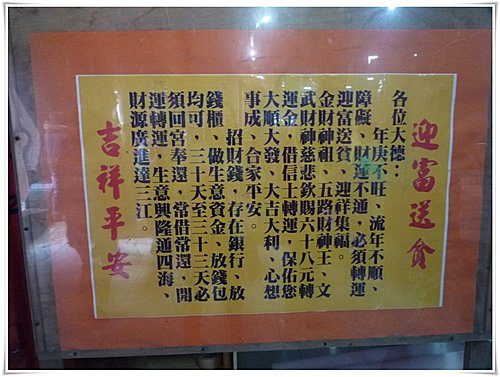 迎富送貧
各位大德：
年庚不旺、流年不順、
障礙、財運不通，必須轉運
迎富送貧、迎祥集福。
金財神祖、五路財神王、文
武財神慈悲欽賜六十八元轉
運金，借信士轉運，保佑您
大順大發、大吉大利、心想
事成、合家平安。
招財錢，存在銀行、放
錢櫃、做生意資金、放錢包
均可，三十天至三十三天必
須回宮奉還，常借常還，開
運轉運，生意興隆通四海、
財源廣進達三江。
吉祥平安